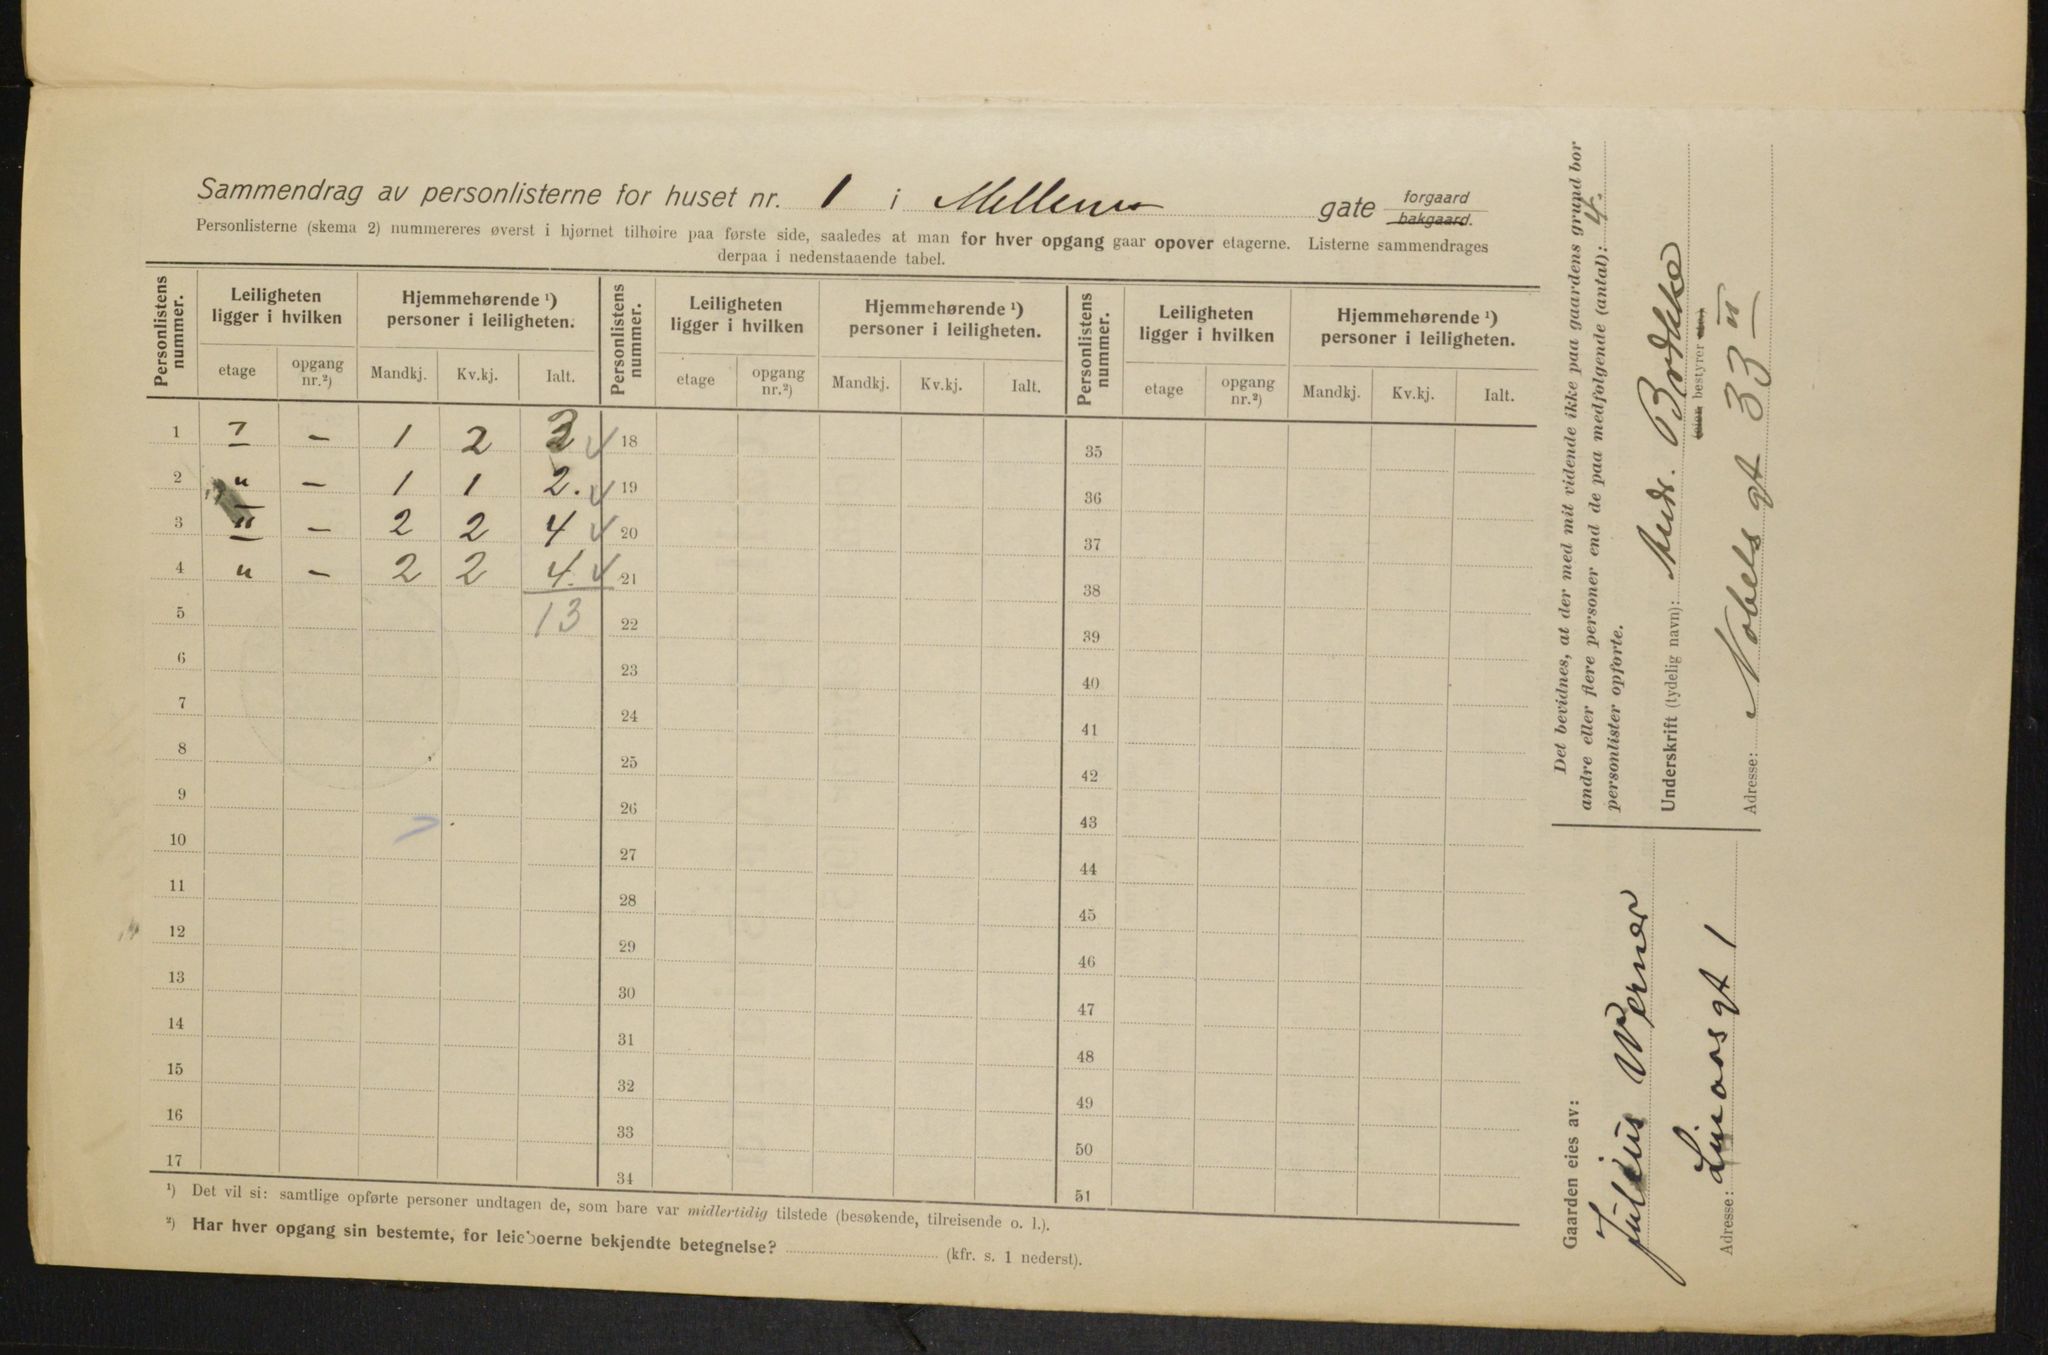 Sammendrag av personlisterne for huset nr. 1 i Mellem gate forgaard bakgaard.
Personlisterne (skema 2) nummereres øverst i hjørnet tilhøire paa første side, saaledes at man for hver opgang gaar opover etagerne. Listerne sammendrages
derpaa i nedenstaaende tabel.
Personlistens nummer. Leiligheten ligger i hvilken Hjemmehørende ¹) personer i leiligheten. Personlistens nummer. Leiligheten ligger i hvilken Hjemmehørende ¹) personer i leiligheten. Personlistens nummer. Leiligheten ligger i hvilken Hjemmehørende ¹) personer i leiligheten.
etage opgang nr.²) Mandkj. Kv.kj. Ialt. etage opgang nr.²) Mandkj. Kv.kj. Ialt. etage opgang nr.²) Mandkj. Kv.kj. Ialt.
1 I – 1 2 3 18 35
2 " – 1 1 2. 19 36
3 II – 2 2 4 20 37
4 " – 2 2 4. 21 38
5 13 22 39
6 23 40
7 24 41
8 25 42
9 26 43
10 27 44
11 28 45
12 29 46
13 30 47
14 31 48
15 32 49
16 33 50
17 34 51
¹) Det vil si: samtlige opførte personer undtagen de, som bare var midlertidig tilstede (besøkende, tilreisende o. l.).
²) Har hver opgang sin bestemte, for leieboerne bekjendte betegnelse? (kfr. s. 1 nederst).
Det bevidnes, at der med mit vidende ikke paa gaardens grund bor
andre eller flere personer end de paa medfølgende (antal): 4.
personlister opførte.
Underskrift (tydelig navn): Andr. Brække
bestyrer
Adresse: Nobels gt 33 II
Gaarden eies av:
Julius Werner
Adresse: Linaas gt 1